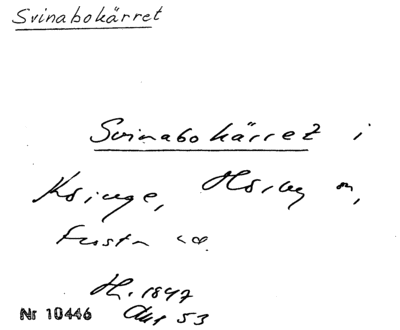 Svinabokärret
Svinabokärret i
Ksinge, Hörby sn,
Frosta hd.
H. 1847
Akt 53
Nr 10446